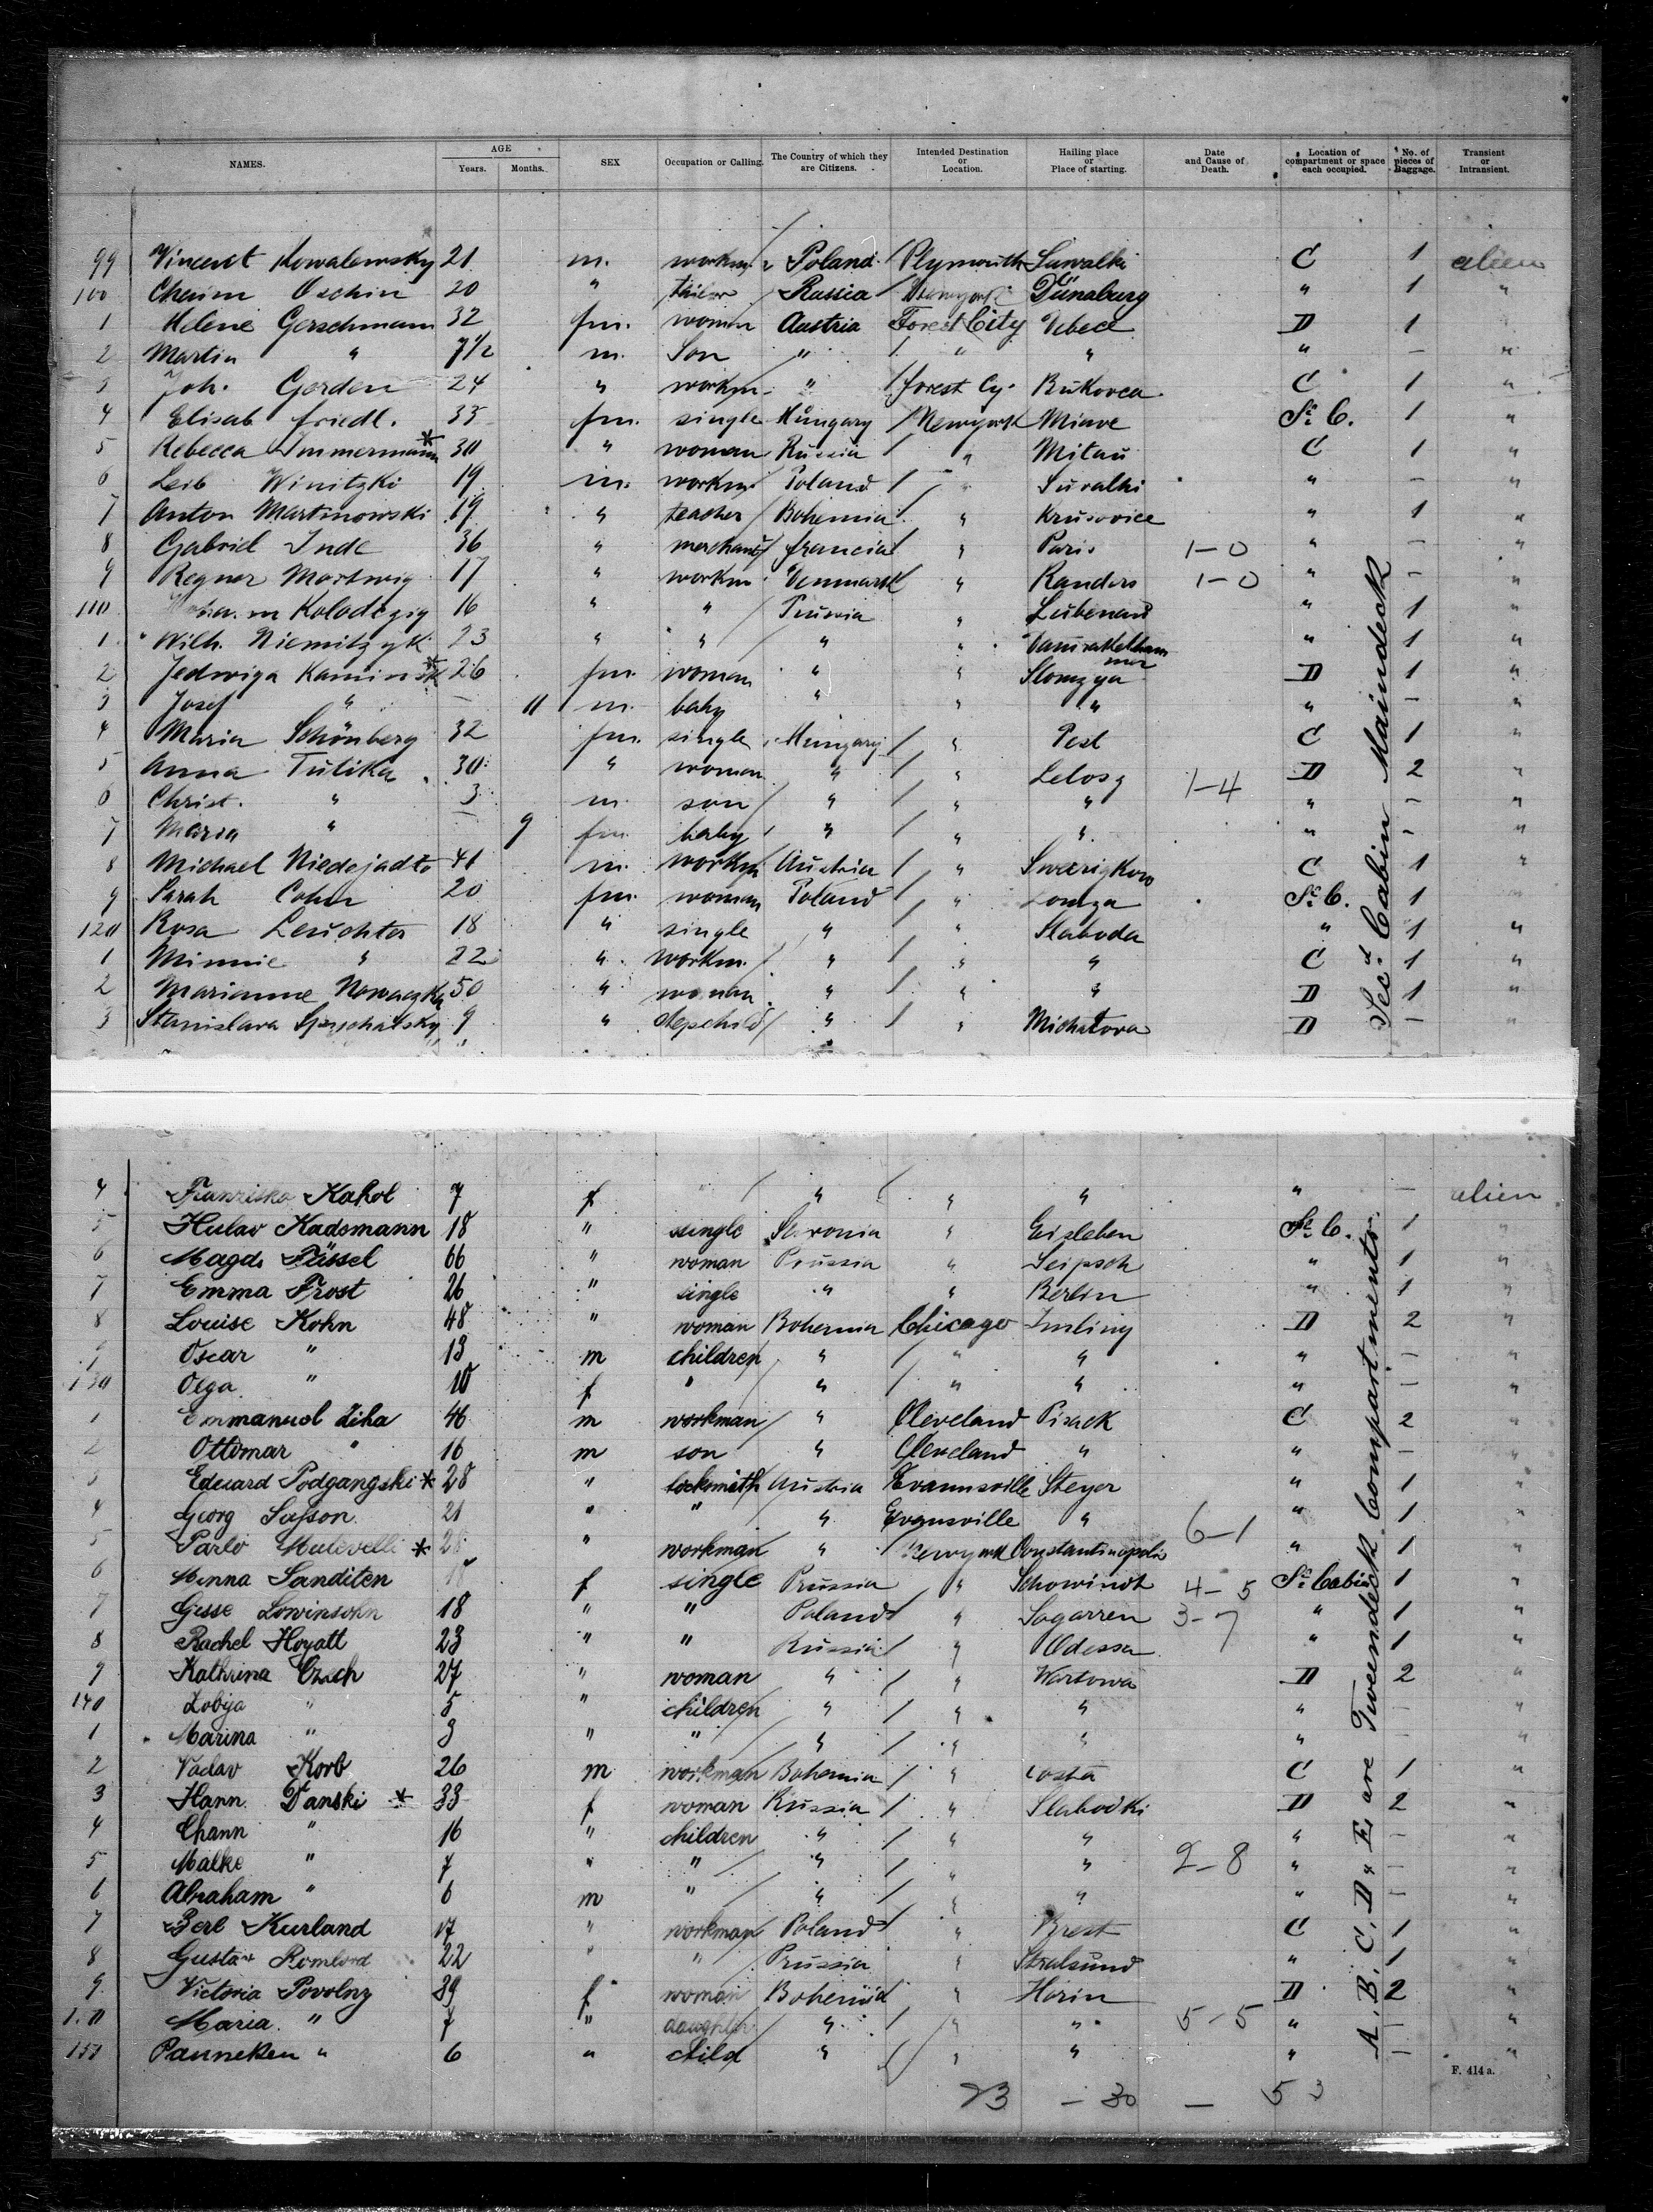 NAMES. AGE Years. Months. SEX Occupation or Calling. The Country of which they are Citizens. Intended Destination or Location. Hailing place or Place of starting. Date and Cause of Death. Location of compartment or space each occupied. No. of pieces of Baggage. Transient or Intransient.
99 Vincent Kowalewsky 21 m. workm. Poland Plymouth Suwalki C 1 alien
100 Chaim Oschin 20 " tailor Russia Newyork Dünaburg " 1 "
1 Helene Gerschmann 32 fm. woman Austria Forest City D 1 "
2 Martin " 7 1/2 m. Son " " " " — "
3 Joh. Gerden 24 " workm. " forest Cy. Bukovca C 1 "
4 Elisab friedl. 33 fm. single Hungary Newyork Miave Sc C. 1 "
5 Rebecca Immermann * 30 " woman Russia " Mitau C 1 "
6 Leib Winitzki 19 m. workm. Poland " Suvalki " — "
7 Anton Martinowski 19 " teacher Bohemia " Krusovice " 1 "
8 Gabriel Inde 36 " merchant francia " Paris 1-0 " — "
9 Regner Martwig 17 " workm. Denmark " Randers 1-0 " — "
110 Kolodezig 16 " " Prussia " Lubenau " 1 "
1 Wilh. Niemitzyk 23 " " " " " 1 "
2 Jedwiga Kaminsk * 26 fm. woman " " Slomzya D 1 "
3 Josef " — 11 m. baby " " " " — "
4 Maria Schönberg 32 fm. single Hungary " Pest C 1 "
5 Anna Tulika 30 " woman " " Lelosz 1-4 D 2 "
6 Christ. " 3 m. son " " " " — "
7 Maria " — 9 fm. baby " " " " — "
8 Michael Niedojadto 41 m. workm. Austria " C 1 "
9 Sarah Cohn 20 fm. woman Poland " Lomza Sc C. 1 "
120 Rosa Leuchter 18 " single " " Slaboda " 1 "
1 Minnie " 22 " workm. " " " C 1 "
2 Marianne Nowaczka 50 " woman " " " D 1 "
3 Stanislava 9 " stepchild " " Michatova D — "
4 Franziska Kahol 7 f " " " " " — alien
5 Hulav Kadsmann 18 " single " Eisleben Sc C. 1 "
6 Magd. Füssel 66 " woman Prussia " Leipsch " 1 "
7 Emma Frost 26 " single " " Berlin " 1 "
8 Louise Kohn 48 " woman Bohemia Chicago Imling D 2 "
9 Oscar " 13 m children " " " " — "
130 Olga " 10 f " " " " " — "
1 Emmanuel Ziha 46 m workman " Cleveland Pisack C 2 "
2 Ottomar " 16 m son " Cleveland " " — "
3 Eduard Podgangski * 28 " locksmith Austria Evannsville Steyer " 1 "
4 Georg Sasson 21 " " " Evansville " 6-1 " 1 "
5 Parlo Mulevelli * 28 " workman " Newyork Constantinopolis " 1 "
6 Minna Sanditen 18 f single Prussia " Schowindt 4-5 Sc Cabin 1 "
7 Gesse Lowinsohn 18 " " Poland " Sagarren 3-7 " 1 "
8 Rachel Hoyatt 23 " " Russia " Odessa " 1 "
9 Kathrina Czach 27 " woman " " Wartowa D 2 "
140 Zobija " 5 " children " " " " — "
1 Marina " 3 " " " " " " — "
2 Vaclav Korb 26 m workman Bohemia " Costa C 1 "
3 Hann Danski * 33 f woman Russia " Slabodki D 2 "
4 Chann " 16 " children " " " " — "
5 Malke " 7 " " " " " 2-8 " — "
6 Abraham " 6 m " " " " " — "
7 Berl Kurland 17 " workman Poland " Brest C 1 "
8 Gustav Romlord 22 " " Prussia " Stralsund " 1 "
9 Victoria Povolny 39 f woman Bohemia " Horin D 2 "
150 Maria " 7 " daughter " " " 5-5 " — "
151 Panneken " 6 " child " " " " — "
23 — 30 — 53
F. 414 a.
A. B. C. D & E are Tweendeck Compartments.
Sec.d Cabin Maindeck